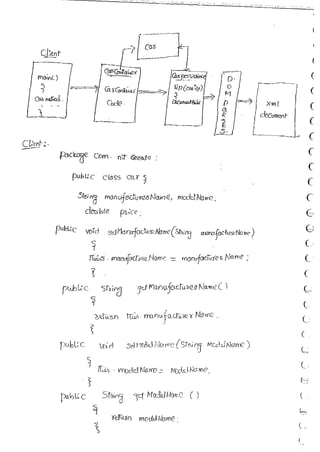 Client
Car
main()
{
}
CarContainer
CarContainer
Code
{
DOM
xml
document
Client :-
package com.
public class car {
String manufacturerName, modelName,
double price;
public void setManufacturerName(String manufacturerName)
{
this.manufacturerName = manufacturerName;
}
public String getManufacturerName()
{
return this manufacturerName.
}
public void setModelName(String ModelName)
{
this.modelName = ModelName,
}
public String get ModelName ()
{
return modelName;
}